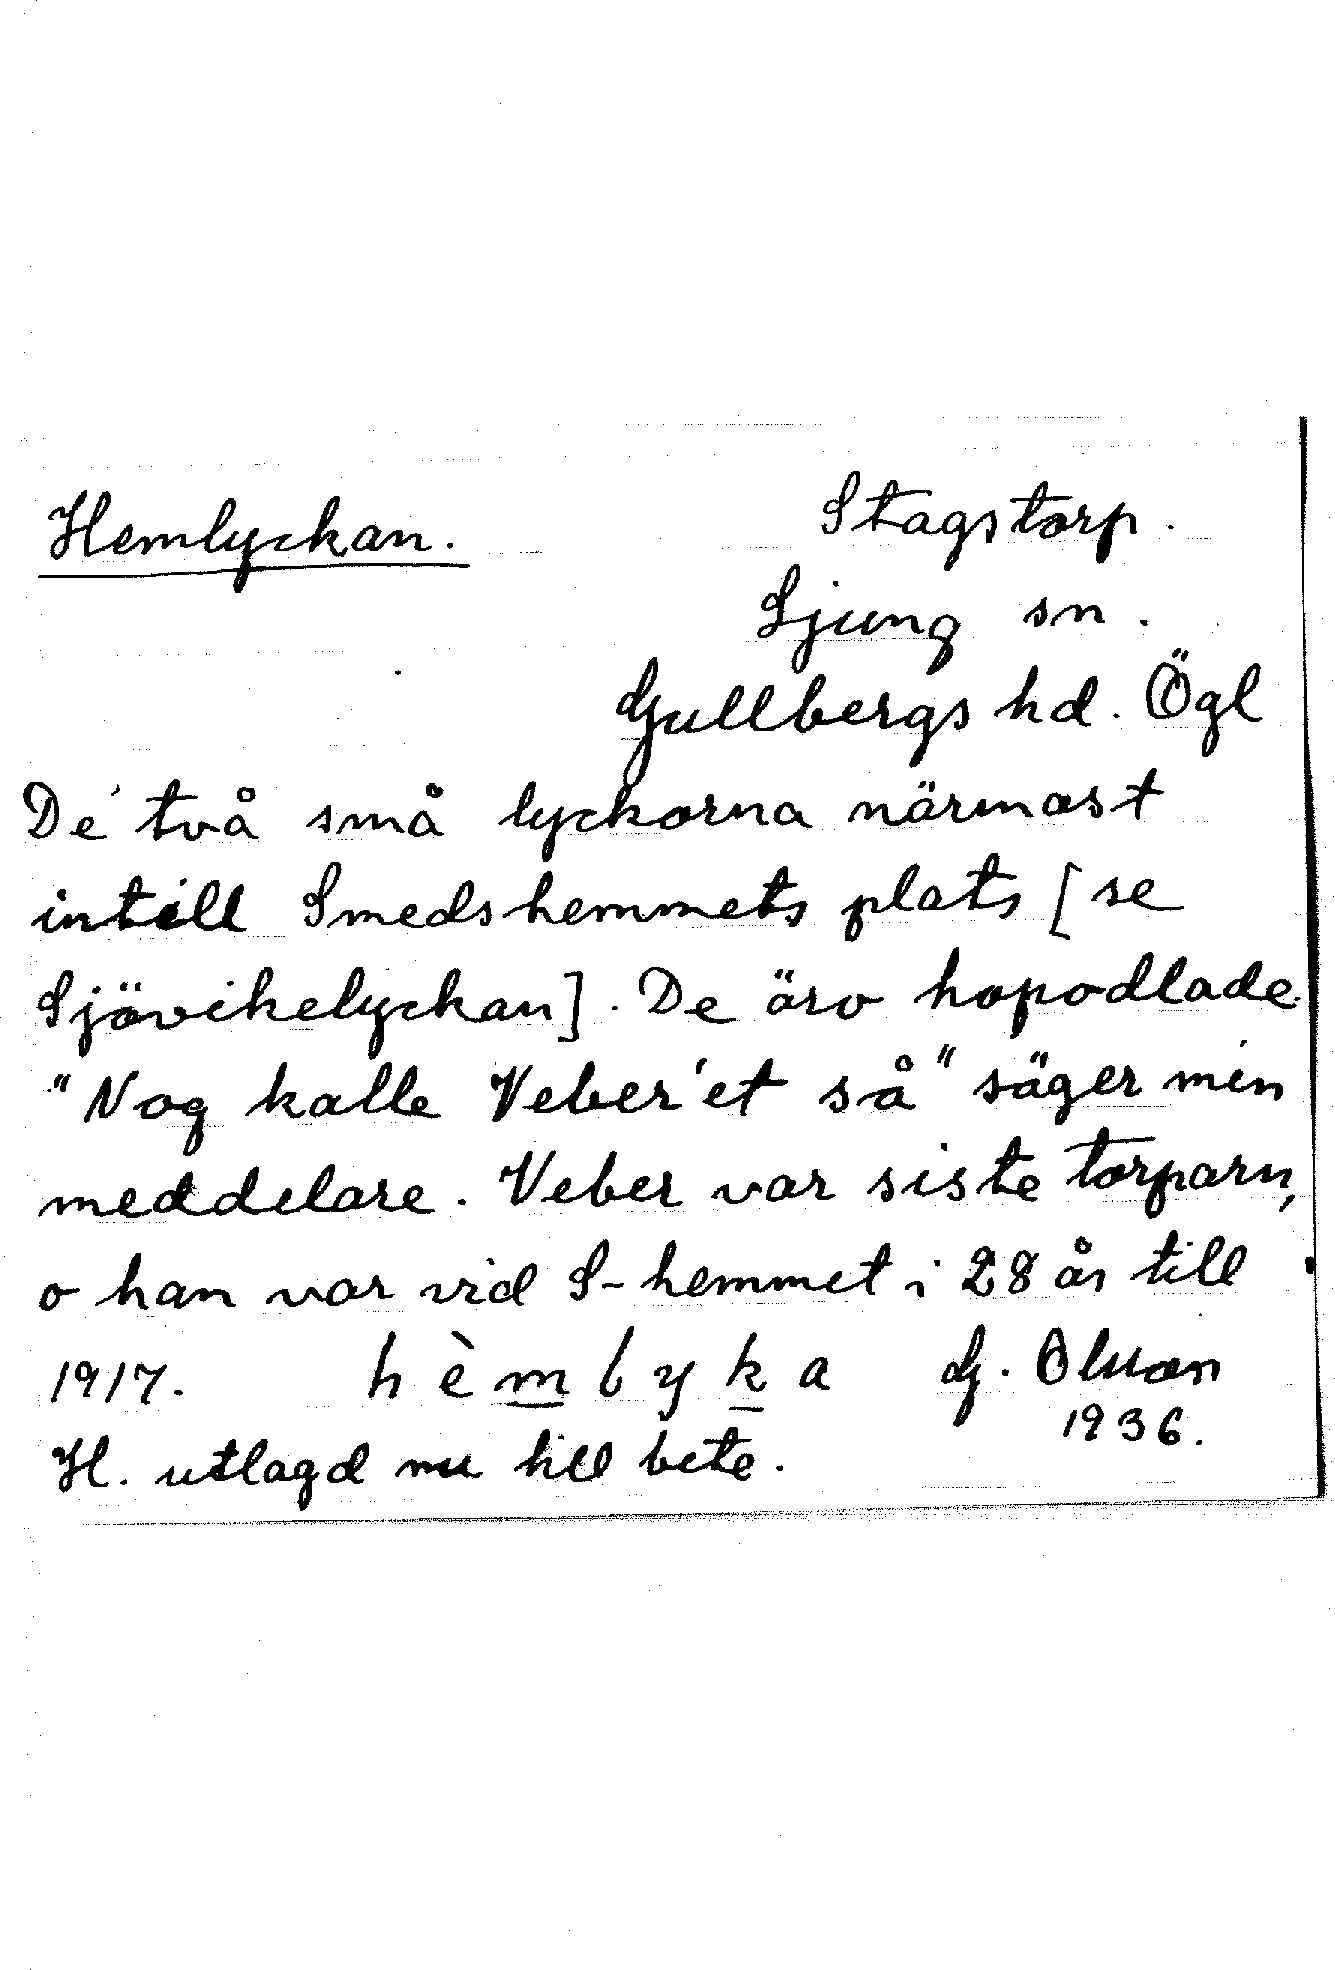 Hemlyckan.
Stagstorp.
Ljung sn.
Gullbergs hd. Ögl
De två små lyckorna närmast
intill Smedshemmets plats [se
Sjövikelyckan]. De äro hopodlade.
"Nog kalle Veber'et så" säger min
meddelare. Veber var siste torparn,
o han var vid S-hemmet i 28 år till
1917. hèmlyka G. Olsson
1936.
H. utlagd nu till bete.